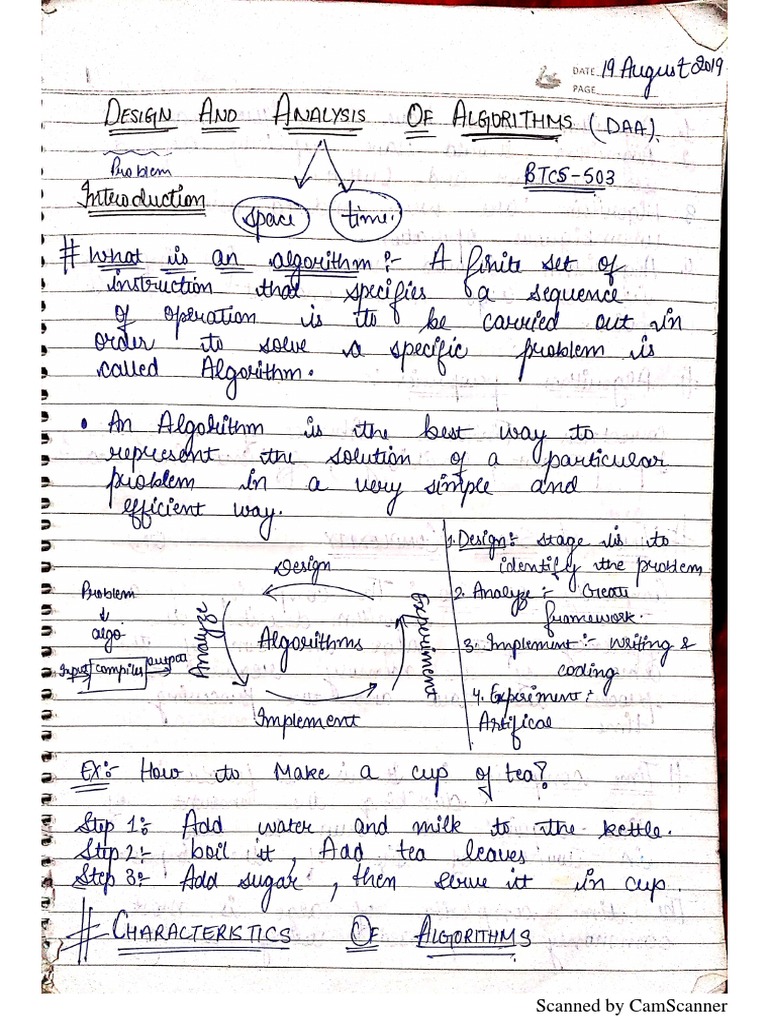 DATE 19 August 2019
PAGE
DESIGN AND ANALYSIS OF ALGORITHMS (DAA).
Problem
BTCS-503
Introduction
space
time
# What is an algorithm:- A finite set of
instruction that specifies a sequence
of operation is to be carried out in
order to solve a specific problem is
called Algorithm.
• An Algorithm is the best way to
represent the solution of a particular
problem in a very simple and
efficient way.
Problem
algo
Input compiler output
Design
Analyze
Algorithms
Experiment
Implement
1. Design:- stage is to
identify the problem
2. Analyze:- Create
framework.
3. Implement:- writing &
coding
4. Experiment:-
Artifical
EX:- How to Make a cup of tea?
Step 1:- Add water and milk to the kettle.
Step 2:- boil it, Add tea leaves
Step 3:- Add sugar, then serve it in cup.
# CHARACTERISTICS OF ALGORITHMS
Scanned by CamScanner